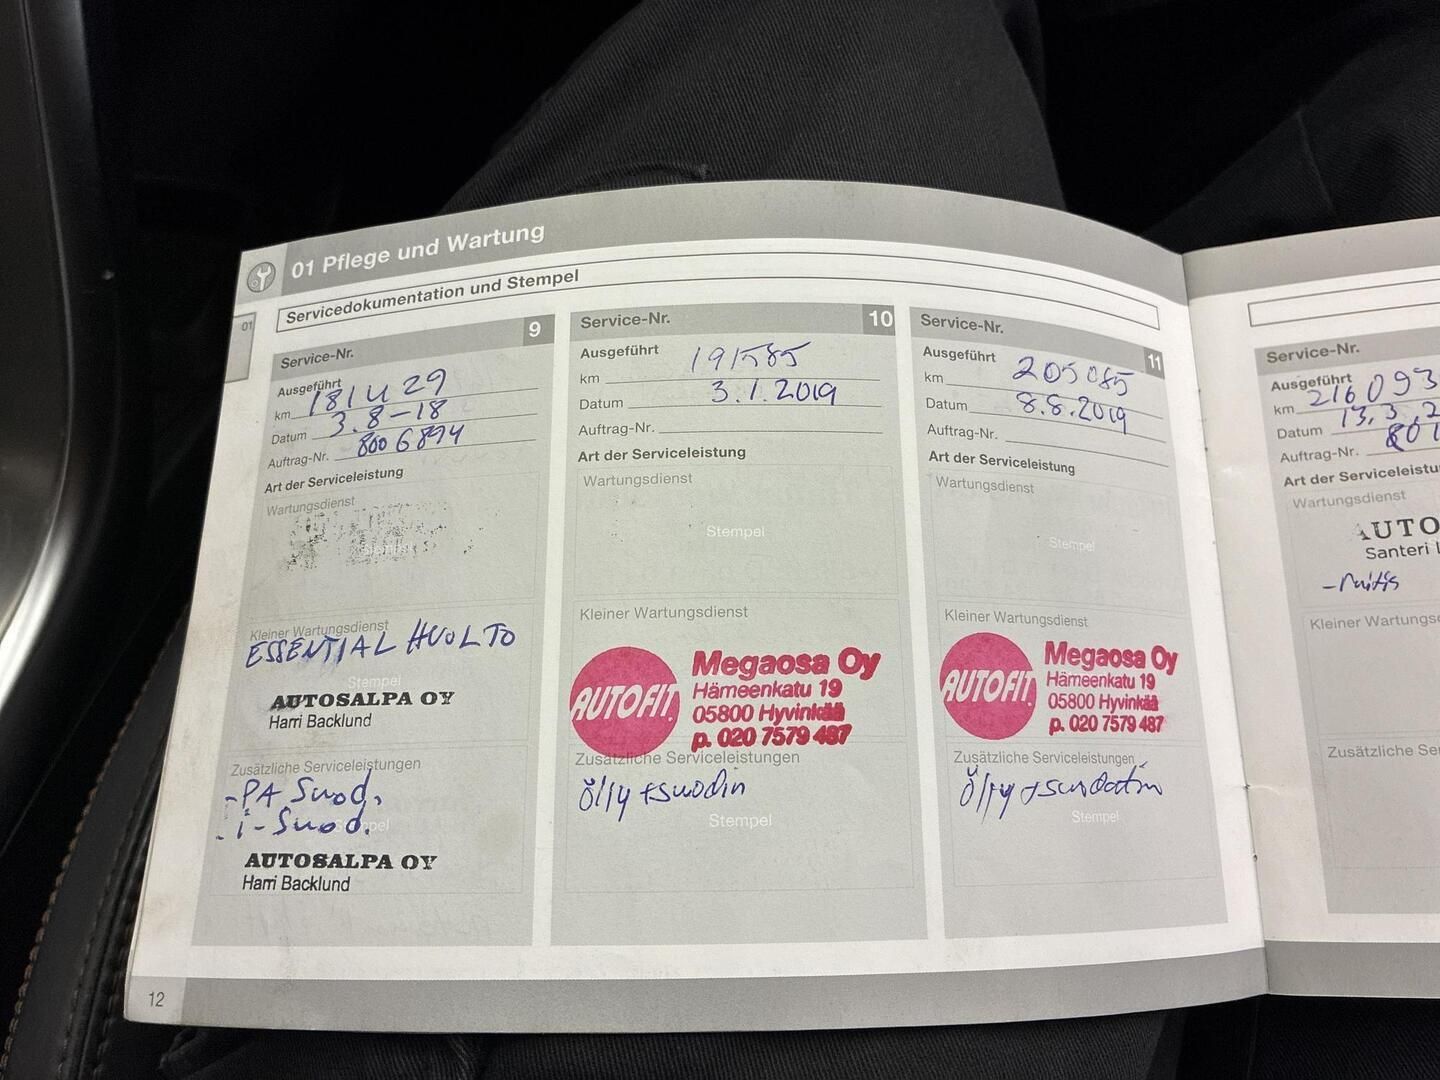 01 Pflege und Wartung
01
Servicedokumentation und Stempel
Service-Nr. 9
Ausgeführt
km 181429
Datum 3.8-18
Auftrag-Nr. 8006894
Art der Serviceleistung
Wartungsdienst
Stempel
Kleiner Wartungsdienst
ESSENTIAL HUOLTO
Stempel
AUTOSALPA OY
Harri Backlund
Zusätzliche Serviceleistungen
-PA Suod.
-i-Suod.
Stempel
AUTOSALPA OY
Harri Backlund
Service-Nr. 10
Ausgeführt
km 191585
Datum 3.1.2019
Auftrag-Nr.
Art der Serviceleistung
Wartungsdienst
Stempel
Kleiner Wartungsdienst
AUTOFIT.
Megaosa Oy
Hämeenkatu 19
05800 Hyvinkää
p. 020 7579 487
Zusätzliche Serviceleistungen
Öljy + suodin
Stempel
Service-Nr. 11
Ausgeführt
km 205085
Datum 8.8.2019
Auftrag-Nr.
Art der Serviceleistung
Wartungsdienst
Stempel
Kleiner Wartungsdienst
AUTOFIT.
Megaosa Oy
Hämeenkatu 19
05800 Hyvinkää
p. 020 7579 487
Zusätzliche Serviceleistungen
Öljy + suodatin
Stempel
Service-Nr.
Ausgeführt
km 216093
Datum 13.3.2
Auftrag-Nr. 801
Art der Serviceleistu
Wartungsdienst
AUTO
Santeri
Kleiner Wartungs
Zusätzliche Se
12